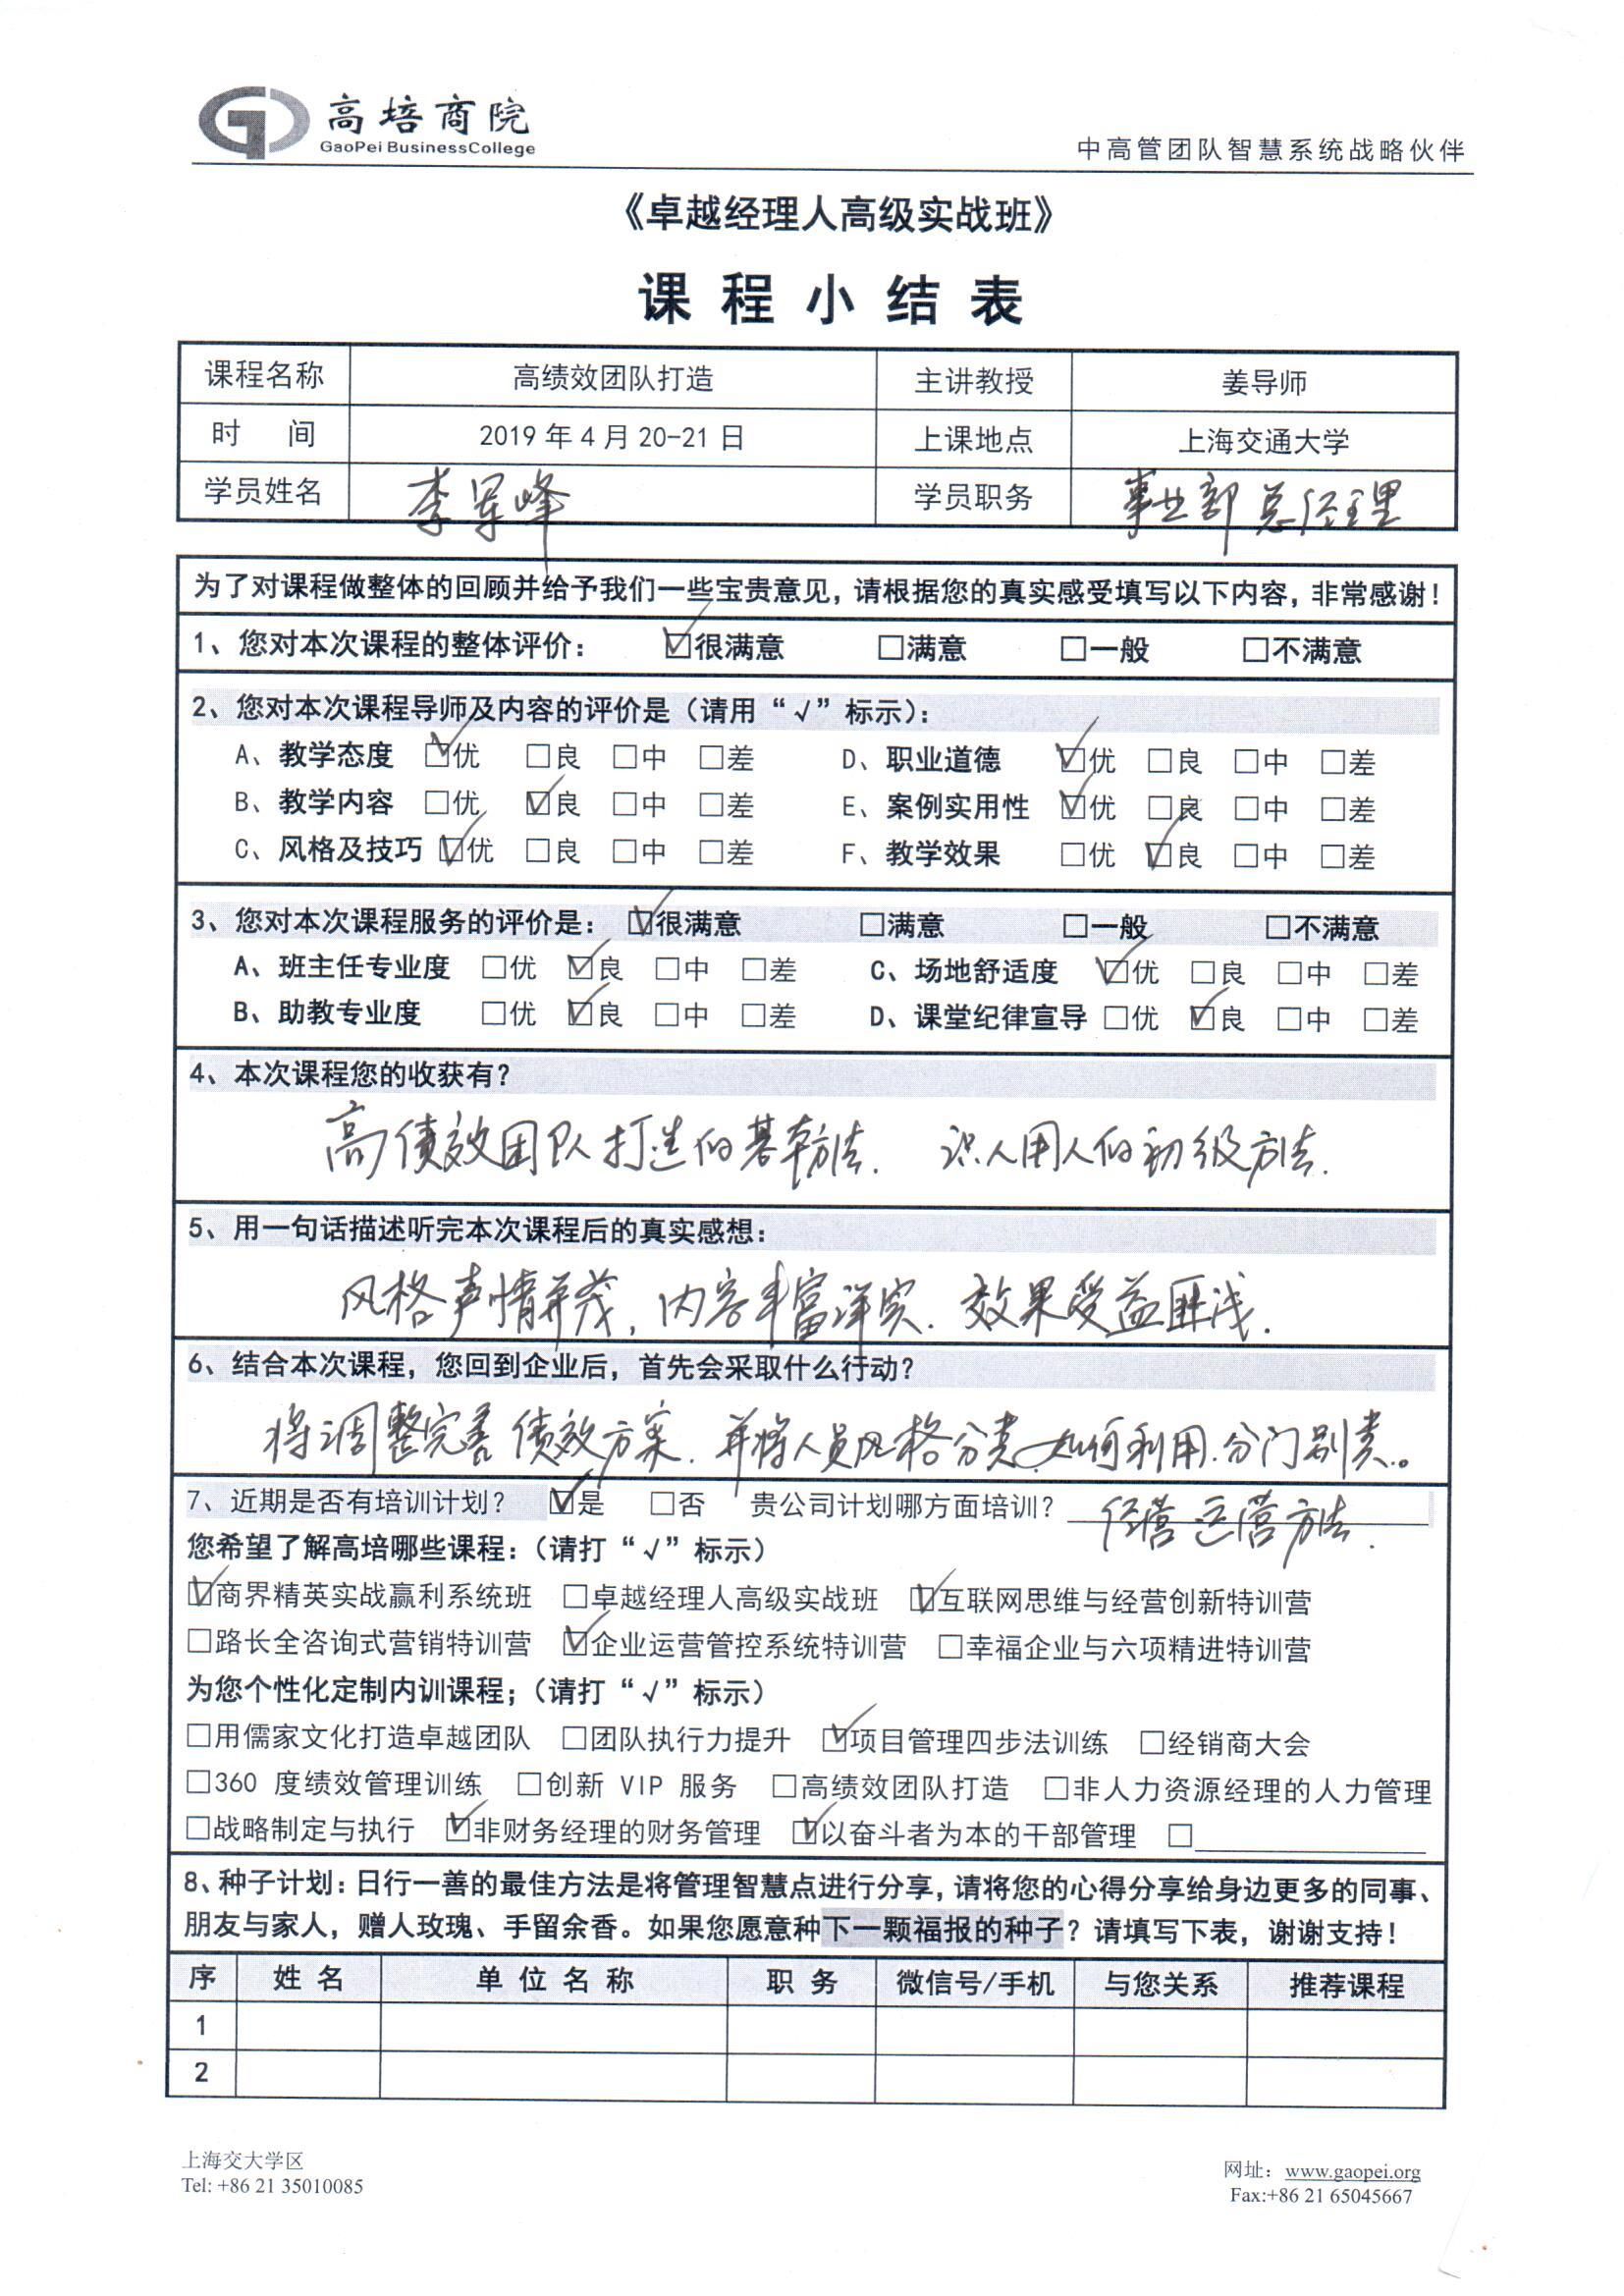 高培商院
GaoPei BusinessCollege
中高管团队智慧系统战略伙伴
《卓越经理人高级实战班》
课程小结表
课程名称 高绩效团队打造 主讲教授 姜导师
时 间 2019 年 4 月 20-21 日 上课地点 上海交通大学
学员姓名 李军峰 学员职务 事业部总经理
为了对课程做整体的回顾并给予我们一些宝贵意见，请根据您的真实感受填写以下内容，非常感谢！
1、您对本次课程的整体评价： ☑很满意 □满意 □一般 □不满意
2、您对本次课程导师及内容的评价是（请用“√”标示）：
A、教学态度 ☑优 □良 □中 □差 D、职业道德 ☑优 □良 □中 □差
B、教学内容 □优 ☑良 □中 □差 E、案例实用性 ☑优 □良 □中 □差
C、风格及技巧 ☑优 □良 □中 □差 F、教学效果 □优 ☑良 □中 □差
3、您对本次课程服务的评价是： ☑很满意 □满意 □一般 □不满意
A、班主任专业度 □优 ☑良 □中 □差 C、场地舒适度 ☑优 □良 □中 □差
B、助教专业度 □优 ☑良 □中 □差 D、课堂纪律宣导 □优 ☑良 □中 □差
4、本次课程您的收获有？
高绩效团队打造的基本方法. 识人用人的初级方法.
5、用一句话描述听完本次课程后的真实感想：
风格声情并茂，内容丰富详实. 效果受益匪浅.
6、结合本次课程，您回到企业后，首先会采取什么行动？
将调整完善绩效方案. 并将人员风格分类 如何利用.分门别类.。
7、近期是否有培训计划？ ☑是 □否 贵公司计划哪方面培训？ 经营 运营方法.
您希望了解高培哪些课程：（请打“√”标示）
☑商界精英实战赢利系统班 □卓越经理人高级实战班 ☑互联网思维与经营创新特训营
□路长全咨询式营销特训营 ☑企业运营管控系统特训营 □幸福企业与六项精进特训营
为您个性化定制内训课程；（请打“√”标示）
□用儒家文化打造卓越团队 □团队执行力提升 ☑项目管理四步法训练 □经销商大会
□360 度绩效管理训练 □创新 VIP 服务 □高绩效团队打造 □非人力资源经理的人力管理
□战略制定与执行 ☑非财务经理的财务管理 ☑以奋斗者为本的干部管理 □
8、种子计划：日行一善的最佳方法是将管理智慧点进行分享，请将您的心得分享给身边更多的同事、
朋友与家人，赠人玫瑰、手留余香。如果您愿意种下一颗福报的种子？请填写下表，谢谢支持！
序 姓 名 单 位 名 称 职 务 微信号/手机 与您关系 推荐课程
1
2
上海交大学区
Tel: +86 21 35010085
网址：www.gaopei.org
Fax:+86 21 65045667